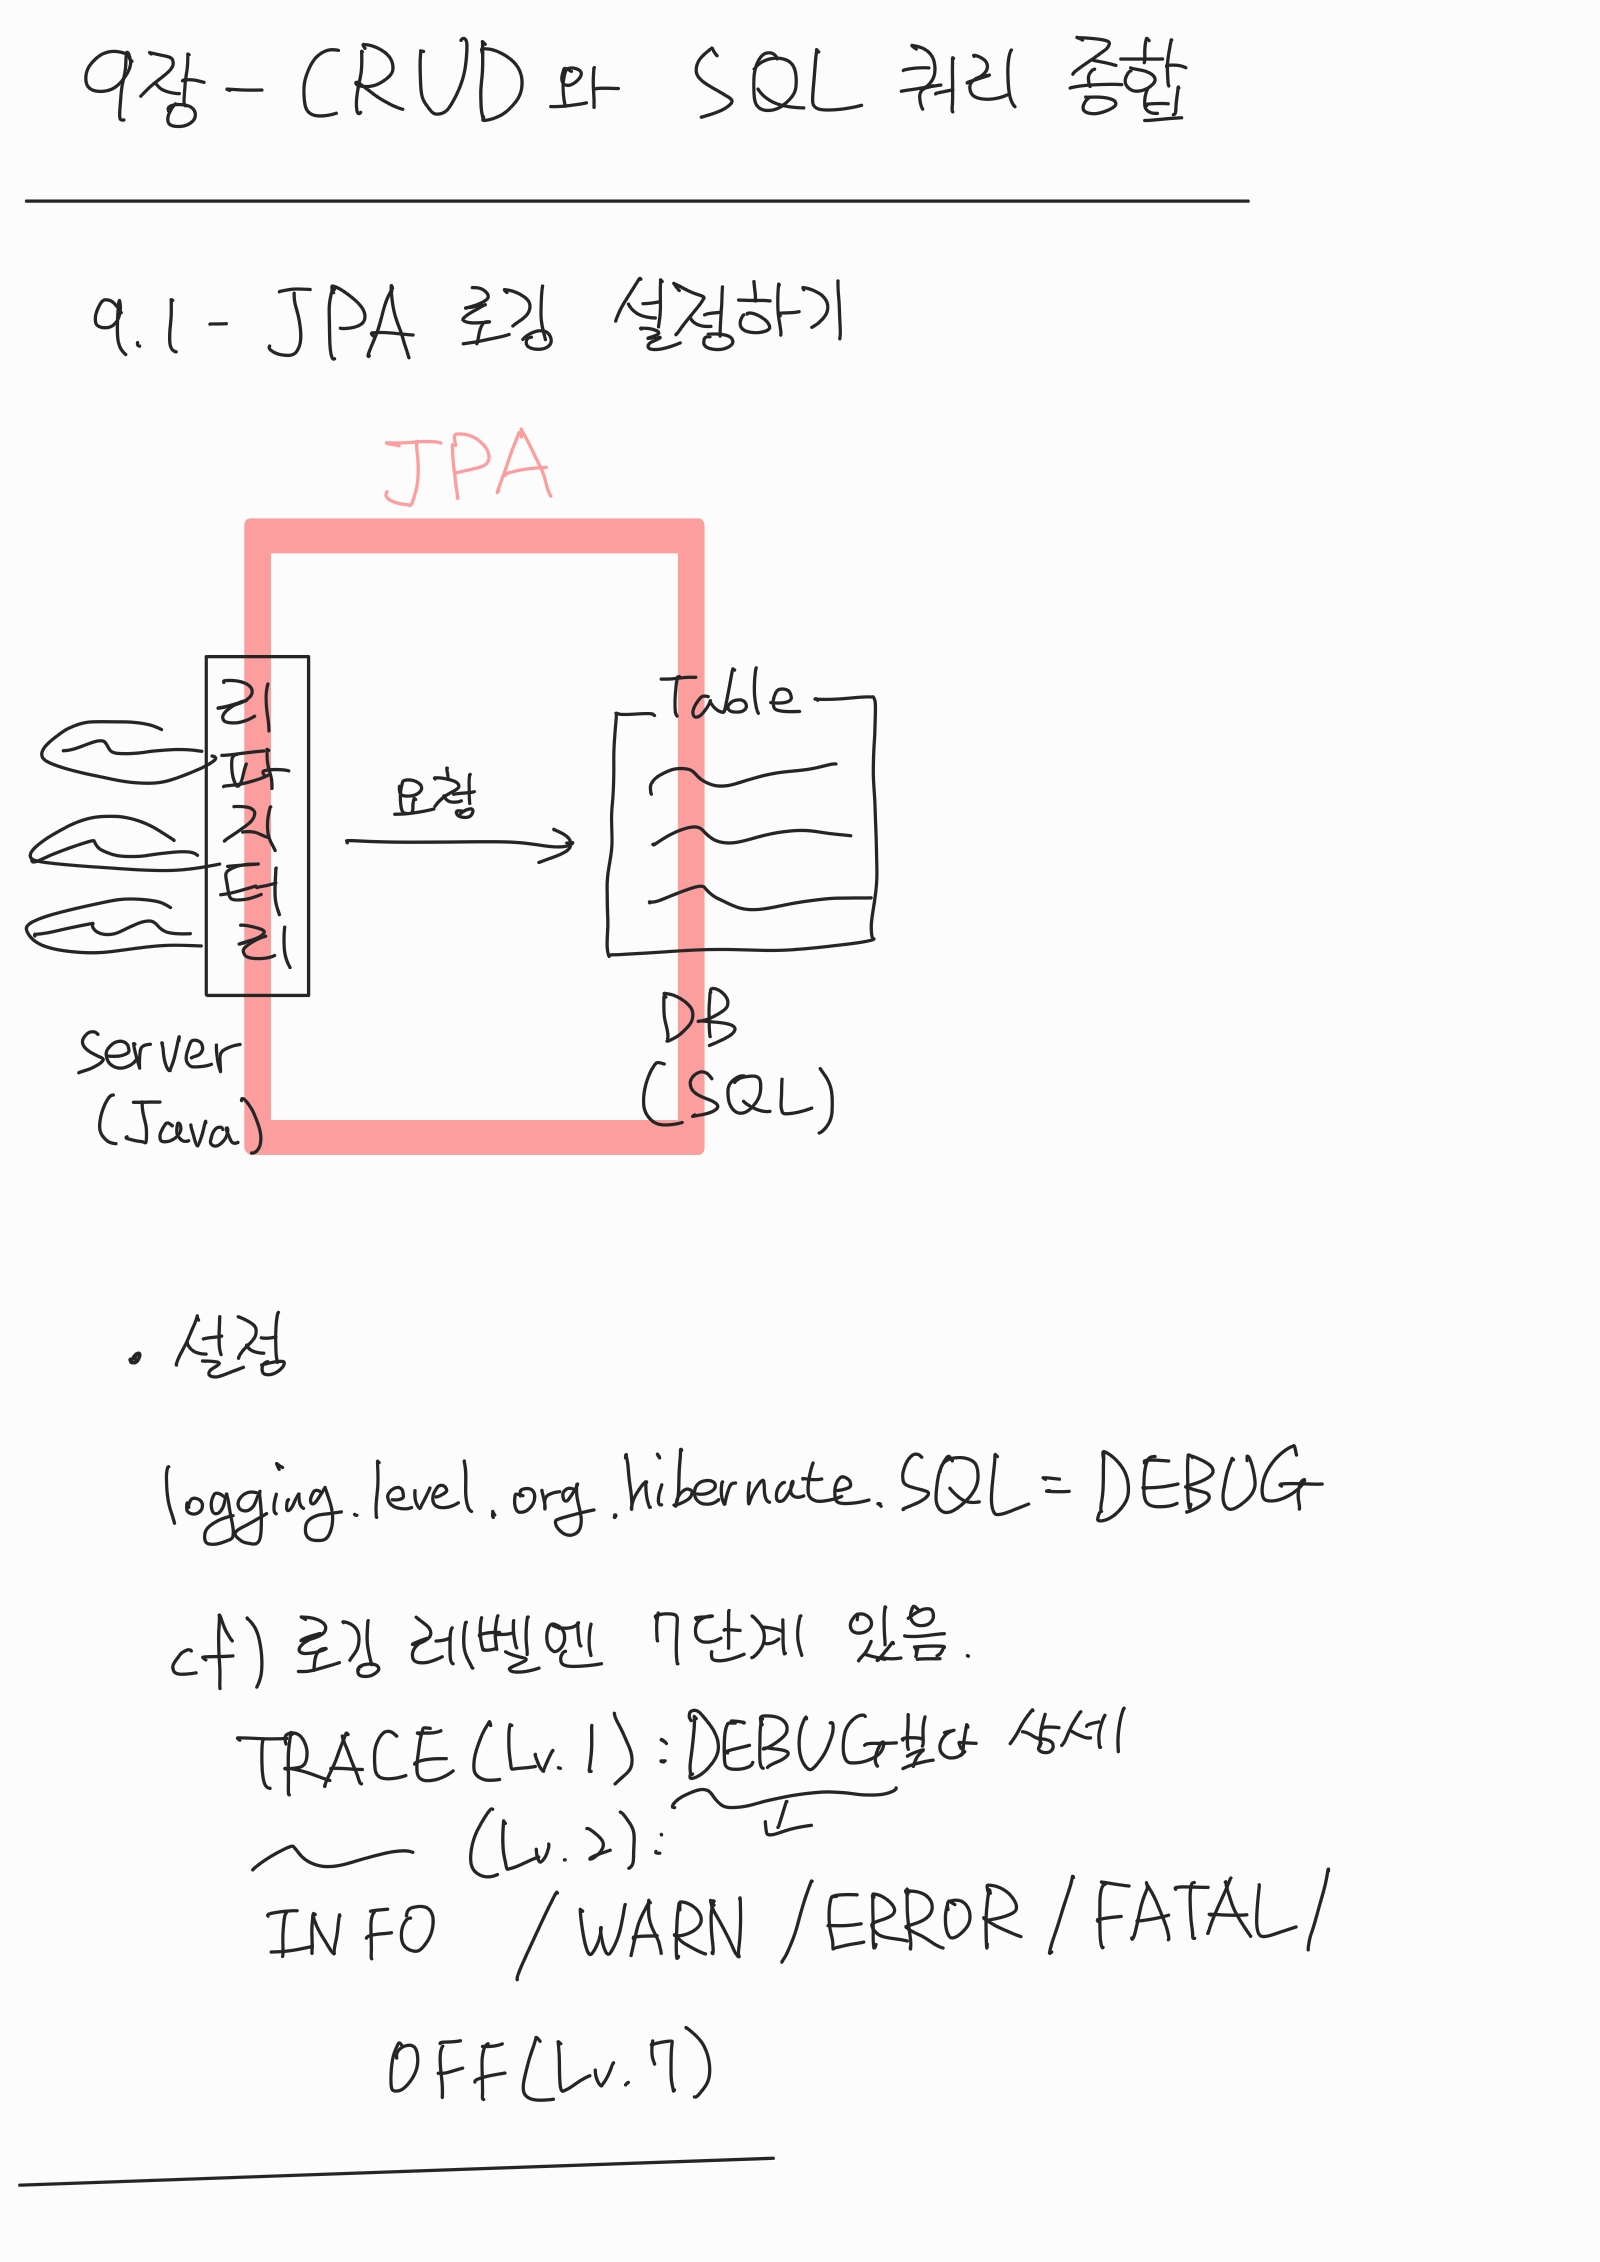 9장 - CRUD와 SQL 쿼리 종합
9.1 - JPA 로깅 설정하기
JPA
리
파
지
터
리
요청
Table
Server
(Java)
DB
(SQL)
. 설정
logging.level.org.hibernate.SQL = DEBUG
cf) 로깅 레벨엔 7단계 있음.
TRACE(Lv.1): DEBUG보다 상세
(Lv.2):
INFO / WARN / ERROR / FATAL /
OFF(Lv.7)